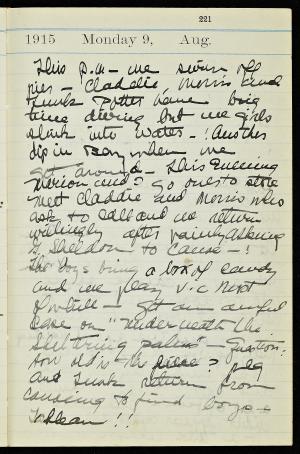 221
1915 Monday 9, Aug.
This p.m - we swim off
pier - Claddie, Morris and
Potter have big
time diving but we girls
slink into water - ! Another
dip in when we
get around - This evening
Marion and I go over to store
meet Claddie and Morris who
ask to call and we return
willingly after
G. Sheldon to - !
The boys bring a box of candy
and we play Vic most
of while - get an awful
case on "Underneath the
palms" - Question:
how old is the ? Peg
and return from
canoeing to find boys -